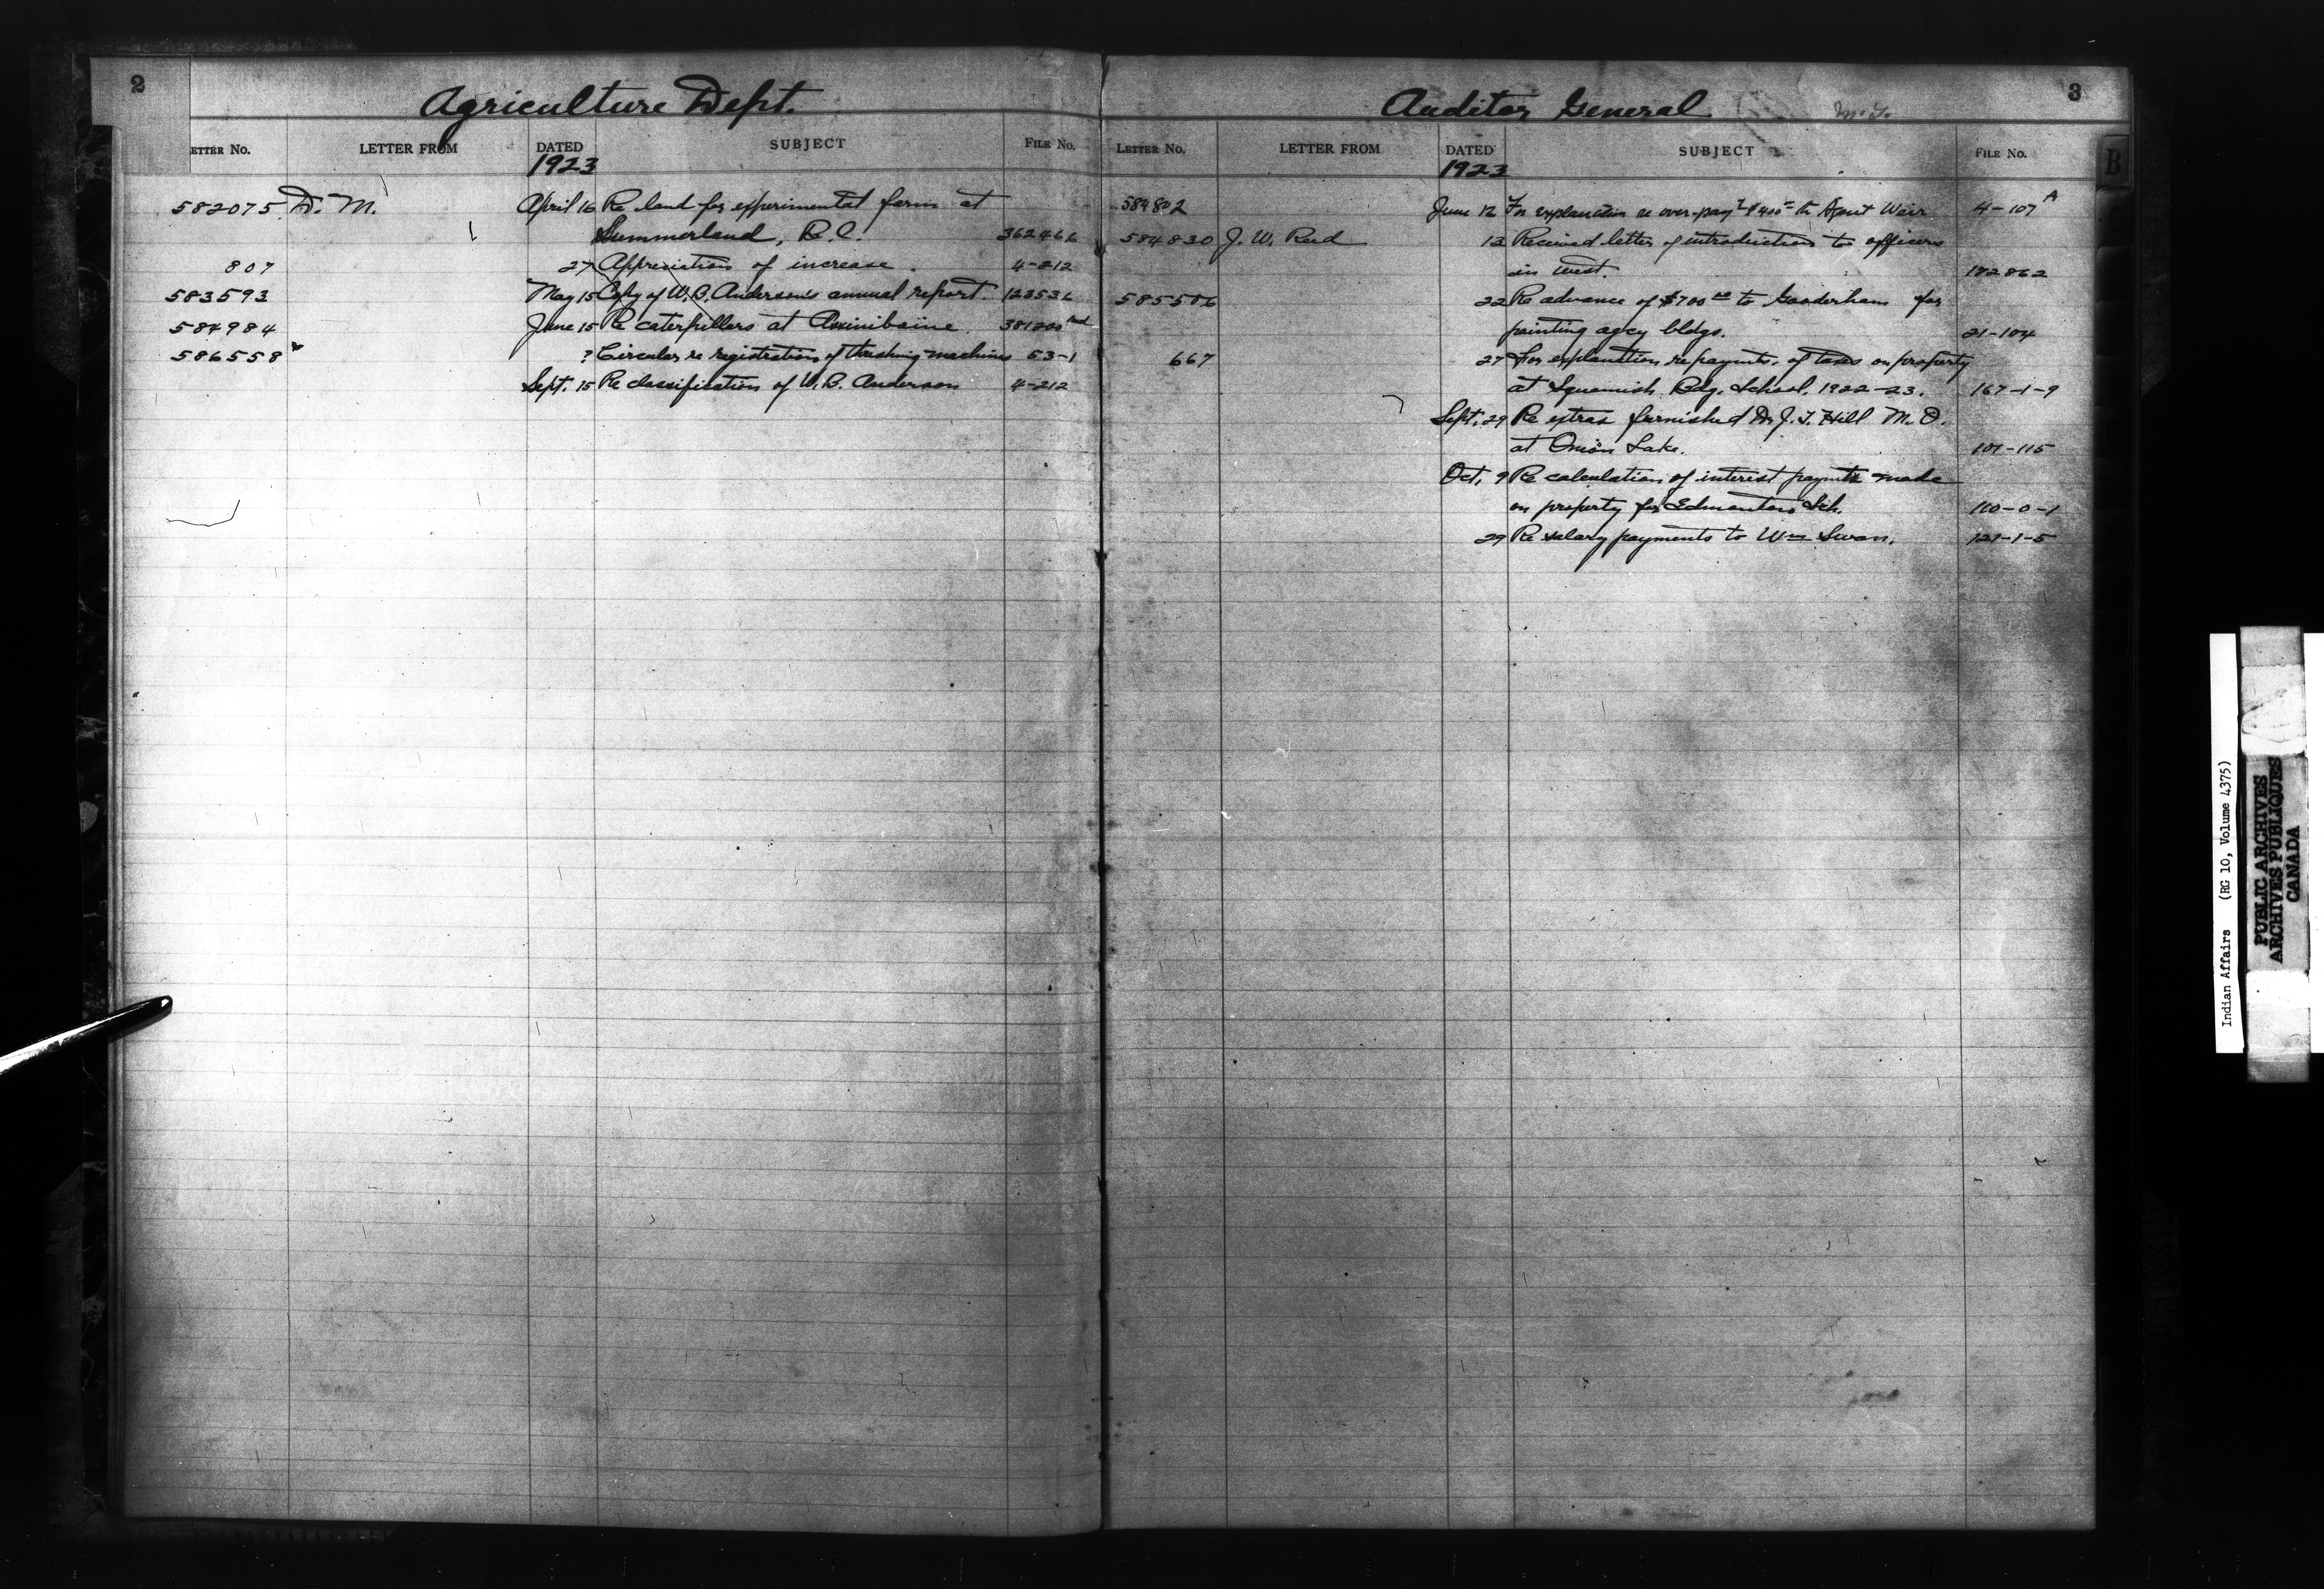 2
Agriculture Dept.
ETTER No. LETTER FROM DATED SUBJECT FILE No.
1923
582075 D. M. April 16 Re land for experimental farm at
Summerland, B.C. 362466
807 27 Appreciation of increase. 4-212
583593 May 15 Copy of W.B. Anderson's annual report. 123536
584984 June 15 Re caterpillers at Assiniboine. 381200
586558 ? Circular re registration of threshing machines 53-1
Sept. 15 Re classification of W.B. Anderson 4-212
3
Auditor General
LETTER No. LETTER FROM DATED SUBJECT FILE No.
B
1923
584802 June 12 For explanation re over-payt $400 to Agent Weir 4-107 A
584830 J. W. Reid 13 Received letter of introduction to officers
in west. 182862
585506 22 Re advance of $700 00 to Gooderham for
painting agcy bldgs. 21-104
667 27 For explanation re paymts. of taxes on property
at Squamish Bdg. School. 1922-23. 167-1-9
Sept. 29 Re extras furnished Dr J. T. Hill M.O.
at Onion Lake. 107-115
Oct. 9 Re calculation of interest paymts made
on property for Edmonton Sch. 110-0-1
29 Re salary payments to Wm Swan. 121-1-5
Indian Affairs (RG 10, Volume 4375)
PUBLIC ARCHIVES
ARCHIVES PUBLIQUES
CANADA